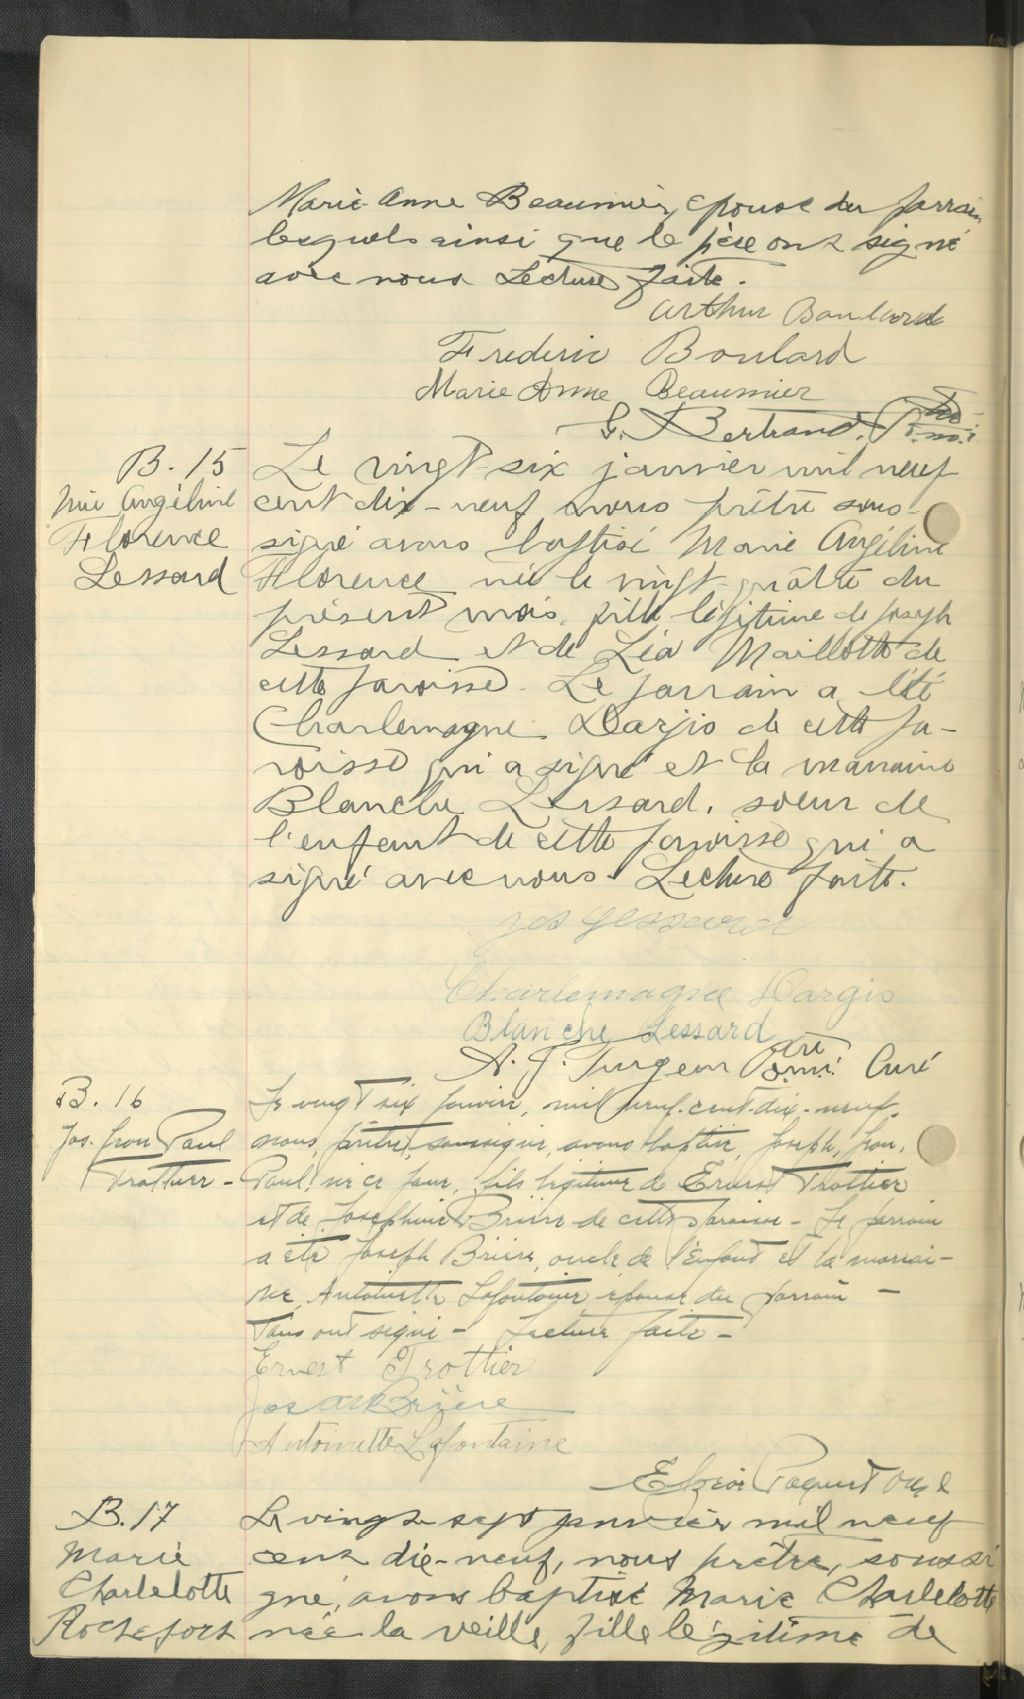 Marie-Anne Beaumier, épouse du parrain,
lesquels ainsi que le père ont signé
avec nous Lecture faite.
Arthur Boulard
Frederic Boulard
Marie Anne Beaumier
G. Bertrand, Ptre o.m.i.
B. 15
Mie Angéline
Florence
Lessard
Le vingt-six janvier mil neuf
cent dix-neuf nous prêtre sous-
signé avons baptisé Marie Angéline
Florence née le vingt-quatre du
présent mois, fille légitime de Joseph
Lessard et de Léa Maillotte de
cette paroisse. Le parrain a été
Charlemagne Dargis de cette pa-
roisse qui a signé et la marraine
Blanche Lessard, soeur de
l'enfant de cette paroisse qui a
signé avec nous. Lecture faite.
Jos Lessard
Charlemagne Dargis
Blanche Lessard
A. J. Turgeon Ptre o.m.i. Curé
B. 16
Jos. Paul
Trottier -
Le vingt six janvier, mil neuf-cent-dix-neuf,
nous, prêtre, soussigné, avons baptisé, Joseph,
Paul, né ce jour, fils légitime de Ernest Trottier
et de Josephine Brière de cette paroisse - Le parrain
a été Joseph Brière, oncle de l'enfant et la marrai-
ne, Antoinette Lafontaine, épouse du parrain -
Tous ont signé - Lecture faite -
Ernest Trottier
Jos Brière
Antoinette Lafontaine
Paquet
B. 17
Marie
Charlelotte
Rochefort
Le vingt-sept janvier mil neuf
cent dix-neuf, nous prêtre, soussi
gné, avons baptisé Marie Charlelotte
née la veille, fille légitime de